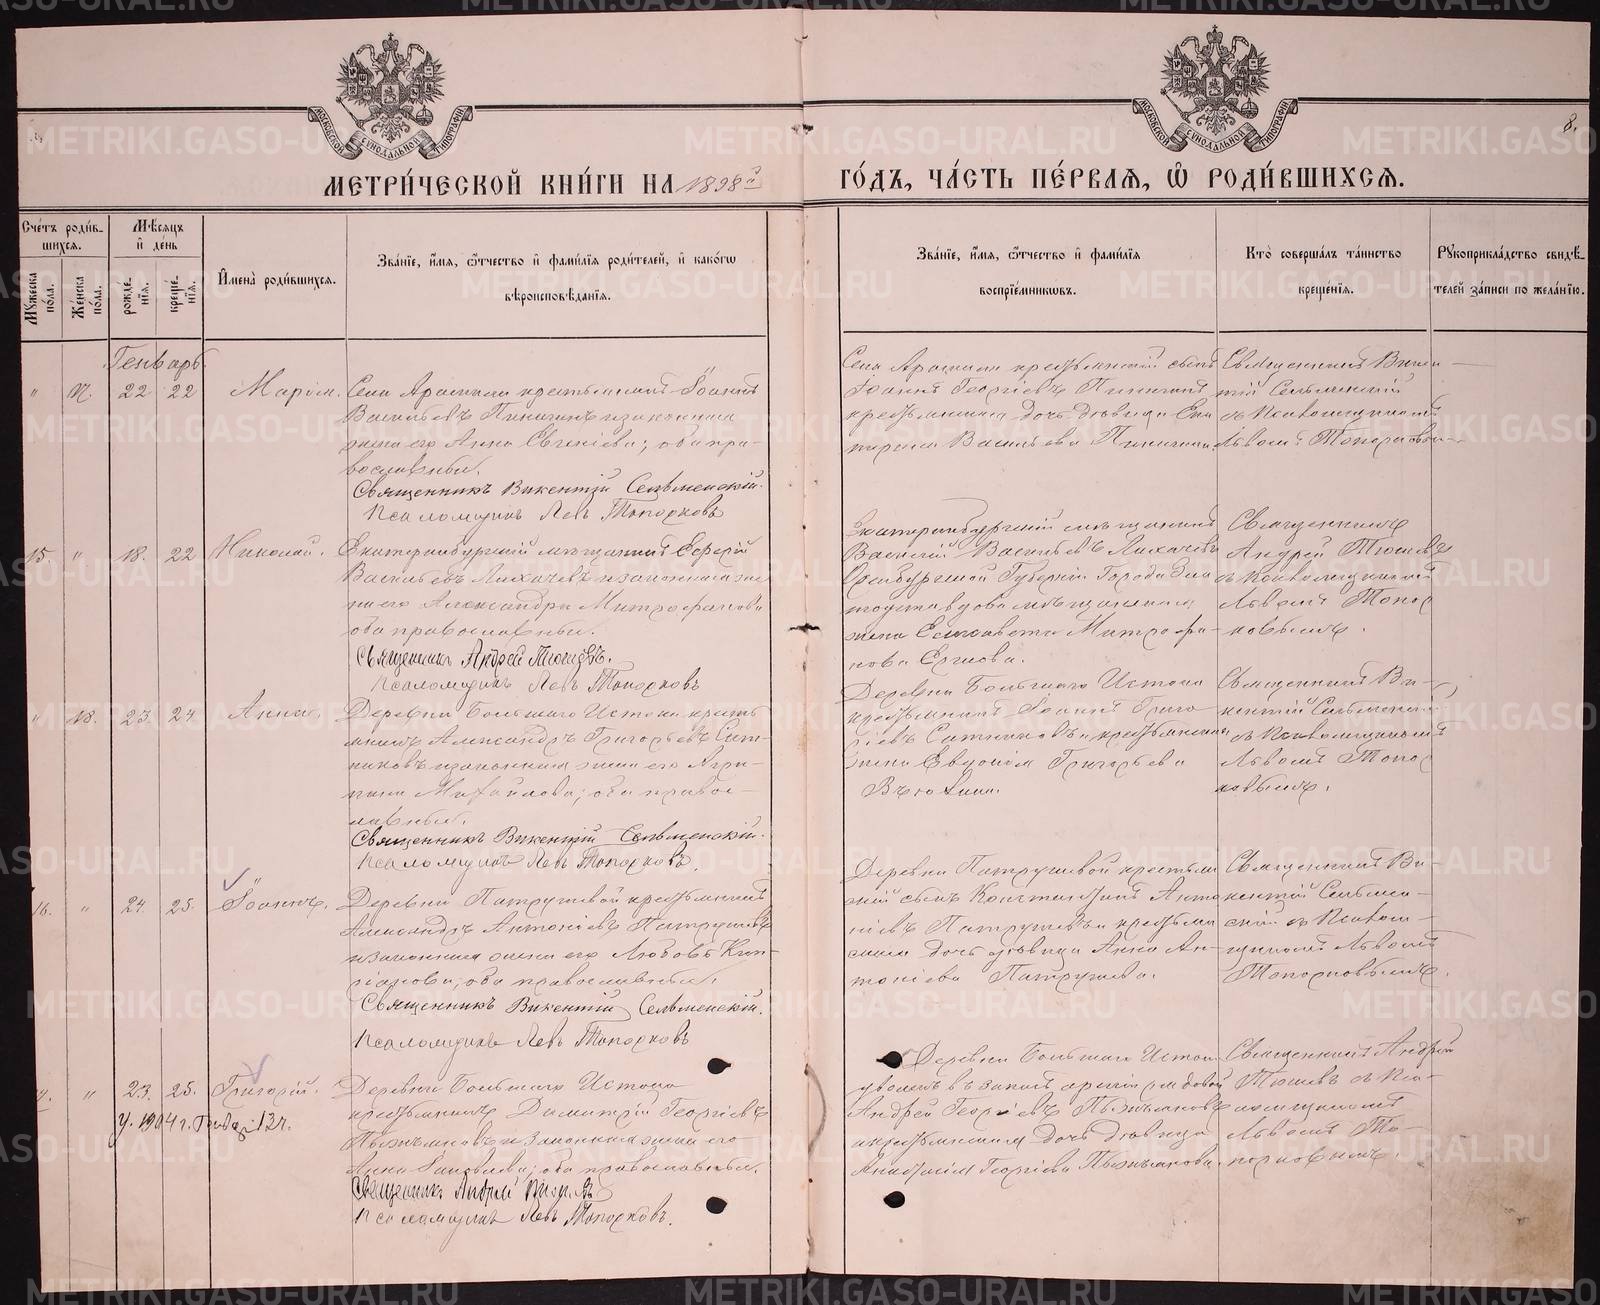 МЕТРИ́ЧЕСКОЙ КНИ́ГИ НА 1898й
ГО́ДЪ, ЧА́СТЬ ПЕ́РВАЯ, Ѽ РОДИ́ВШИХСЯ.
8.
МОСКОВСКОЙ СѴНОДАЛЬНОЙ ТИПОГРАФІИ
МОСКОВСКОЙ СѴНОДАЛЬНОЙ ТИПОГРАФІИ
Сче́тъ роди́вшихся.
Мꙋ́жеска по́ла.
Же́нска по́ла.
Мѣ́сяцъ и де́нь
рожде́нїя.
креще́нїя.
И҆мена̀ роди́вшихся.
Зва́нїе, и҆́мя, ѻ҆́тчество и҆ фами́лїя роди́телей, и҆ како́гѡ
вѣроисповѣ́данїя.
Зва́нїе, и҆́мя, ѻ҆́тчество и҆ фами́лїя
воспрїе́мникѡвъ.
Кто̀ соверша́лъ та́инство
креще́нїя.
Рꙋкоприкла́дство свидѣ́-
телей за́писи по жела́нїю.
Генварь
" 17. 22 22 Марія.
Села Арамили крестьянинъ Іоаннъ
Васильевъ и законная
жена его Анна Евгеніева; оба пра-
вославные.
Священникъ Викентій Сельменскій.
Псаломщикъ Левъ Топорковъ
Села Арамили крестьянскій сынъ
Іоаннъ Георгіевъ
крестьянская дочь девица Ека
терина Васильева
Священникъ Викен
тій Сельменскій
съ Псаломщикомъ
Львомъ Топорковы
15. " 18. 22 Николай.
Екатеринбургскій мѣщанинъ
Васильевъ Лихачевъ и законная же
на его Александра Митрофанова
оба православные.
Священникъ Андрей Тюшевъ.
Псаломщикъ Левъ Топорковъ
Екатеринбургскій мѣщанинъ
Василій Васильевъ Лихачевъ
Оренбургской Губерніи Города Зла
тоуста вдова мѣщанская
жена Елисавета Митрофа-
нова
Священникъ
Андрей Тюшевъ
съ Псаломщикомъ
Львомъ Топор
ковымъ.
" 18. 23. 24 Анна.
Деревни Большаго Истока кресть
янинъ Александръ Григорьевъ Сит-
никовъ и законная жена его Агри-
пина Михайлова; оба право-
славные.
Священникъ Викентій Сельменскій.
Псаломщикъ Левъ Топорковъ.
Деревни Большаго Истока
крестьянинъ Іоаннъ Григо
ріевъ Ситниковъ и крестьянская
жена Евдокія Григорьева
Священникъ Ви-
кентій Сельменскій
съ Псаломщикомъ
Львомъ Топор
ковымъ.
16. " 24. 25. Іоаннъ.
Деревни Патрушевой крестьянинъ
Александръ Антоніевъ Патрушевъ
и законная жена его Любовь Кип-
ріанова; оба православные.
Священникъ Викентій Сельменскій.
Псаломщикъ Левъ Топорковъ
Деревни Патрушевой крестьян
скій сынъ Константинъ Анто
ніевъ Патрушевъ и крестьян
ская дочь девица Анна Ан-
тоніева Патрушева.
Священникъ Ви-
кентій Сельмен-
скій съ Псалом-
щикомъ Львомъ
Топорковымъ.
" 23. 25. Григорій.
у. 1904 г. 13 ч.
Деревни Большаго Истока
крестьянинъ Димитрій Георгіевъ
Пьянковъ и законная жена его
Анна Яковлева; оба православные.
Священникъ Андрей
Псаломщикъ Левъ Топорковъ.
Деревни Большаго Истока
уволенъ въ запасъ арміи рядовой
Андрей Георгіевъ Пьянковъ
и крестьянская дочь девица
Анастасія Георгіева Пьянкова.
Священникъ Андрей
Тюшевъ съ Пса-
ломщикомъ
Львомъ То-
порковымъ.
METRIKI.GASO-URAL.RU